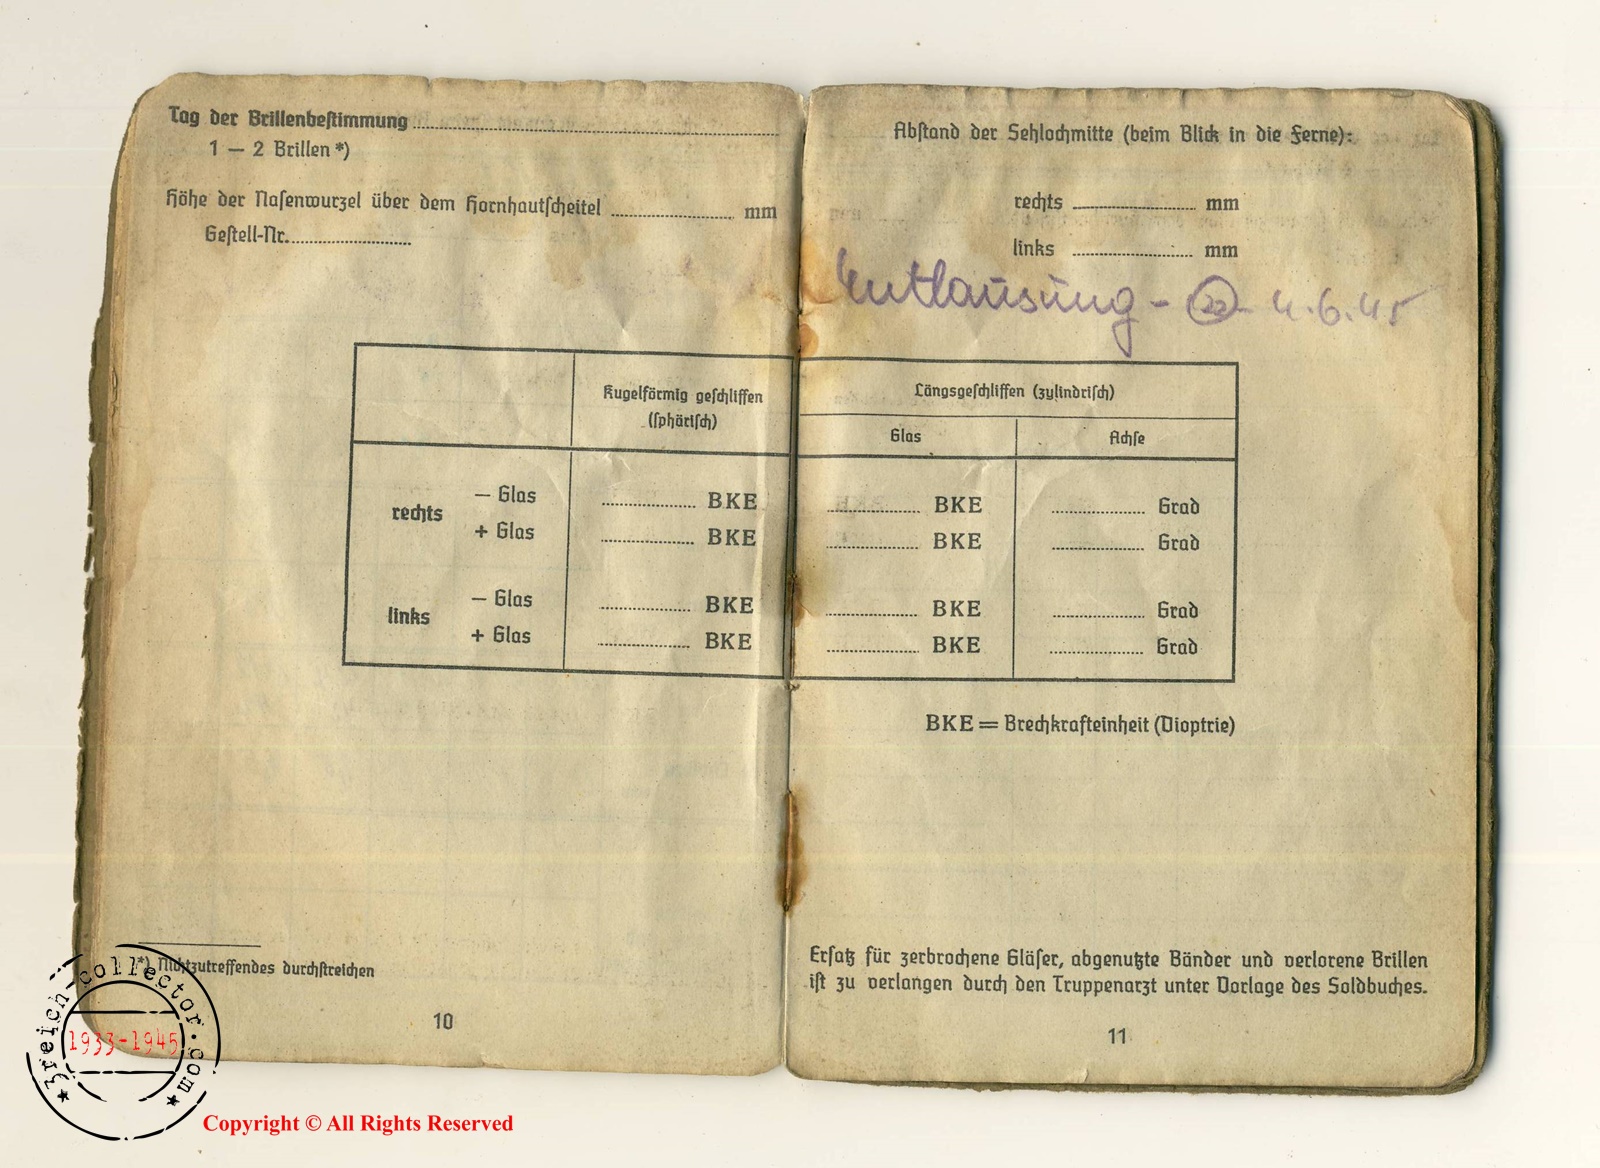 Tag der Brillenbestimmung
1 — 2 Brillen *)
Höhe der Nasenwurzel über dem Hornhautscheitel mm
Gestell-Nr.
Kugelförmig geschliffen
(sphärisch)
rechts
— Glas BKE
+ Glas BKE
links
— Glas BKE
+ Glas BKE
*) Nichtzutreffendes durchstreichen
10
Abstand der Sehlochmitte (beim Blick in die Ferne):
rechts mm
links mm
Entlausung - 22 - 4.6.45
Längsgeschliffen (zylindrisch)
Glas Achse
BKE Grad
BKE Grad
BKE Grad
BKE Grad
BKE = Brechkrafteinheit (Dioptrie)
Ersatz für zerbrochene Gläser, abgenutzte Bänder und verlorene Brillen
ist zu verlangen durch den Truppenarzt unter Vorlage des Soldbuches.
11
3reich-collector.com
1933-1945
Copyright © All Rights Reserved